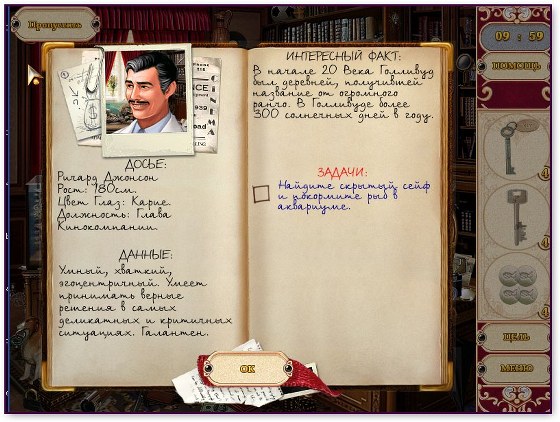 Пропустить
09 : 59
ПОМОЩЬ
ИНТЕРЕСНЫЙ ФАКТ:
В начале 20 Века Голливуд
был деревней, получившей
название от огромного
ранчо. В Голливуде более
300 солнечных дней в году.
ДОСЬЕ:
Ричард Джонсон
Рост: 180см.
Цвет Глаз: Карие.
Должность: Глава
Кинокомпании.
ЗАДАЧИ:
Найдите скрытый сейф
и покормите рыб в
аквариуме.
ДАННЫЕ:
Умный, хваткий,
эгоцентричный. Умеет
принимать верные
решения в самых
деликатных и критичных
ситуациях. Галантен.
ОК
ЦЕЛЬ
МЕНЮ